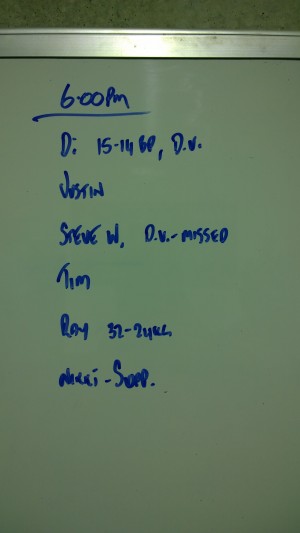 6:00PM
Di 15-14 GP, D.U.
JUSTIN
STEVE W, D.U.-MISSED
TIM
RAY 32-24KG
NIKKI-SUPP.